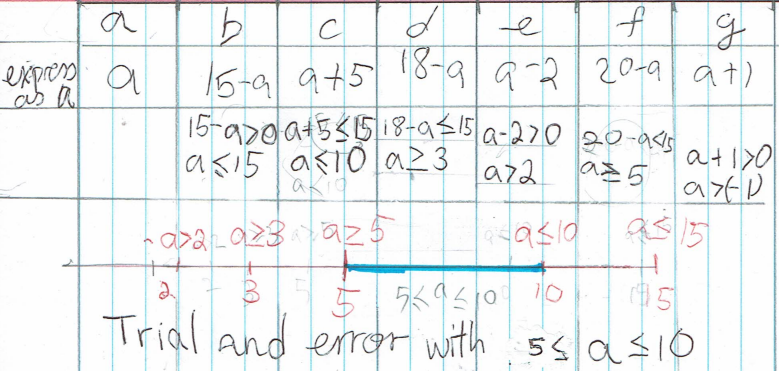 a b c d e f g
express as a a 15-a a+5 18-a a-2 20-a a+1
15-a>0 a+5≤15 18-a≤15 a-2>0 20-a≤15 a+1>0
a≤15 a≤10 a≥3 a>2 a≥5 a>(-1)
a>2 a≥3 a≥5 a≤10 a≤15
2 3 5 5≤a≤10 10 15
Trial and error with 5≤ a ≤10